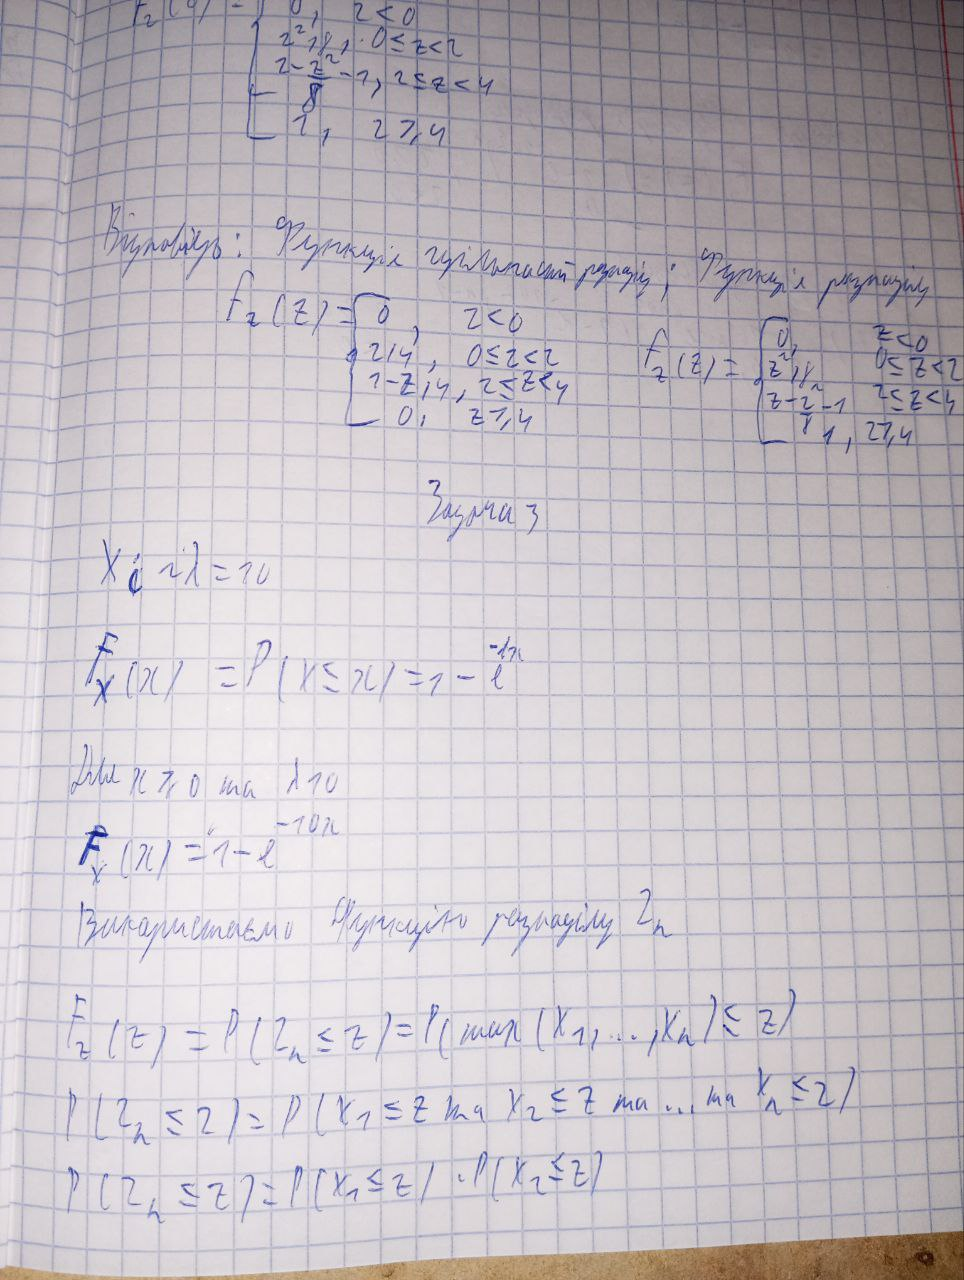 F_z(z) = { 0, z<0
z²/8, 0≤z<2
z-z²/8-1, 2≤z<4
1, z≥4
Відповідь: Функція щільності розподілу; Функція розподілу
f_z(z) = { 0, z<0
z/4, 0≤z<2
1-z/4, 2≤z<4
0, z≥4
F_z(z) = { 0, z<0
z²/8, 0≤z<2
z-z²/8-1, 2≤z<4
1, z≥4
Задача 3
X_i ~ λ=10
F_x(x) = P(x≤x) = 1-e^{-λx}
Для x≥0 та λ10
F_x(x) = 1-e^{-10x}
Використаємо Функцію розподілу Z_n
F_z(z) = P(Z_n≤z) = P(max(X_1,...,X_n)≤z)
P(Z_n≤z) = P(X_1≤z та X_2≤z та ... та X_n≤z)
P(Z_n≤z) = P(X_1≤z)·P(X_2≤z)